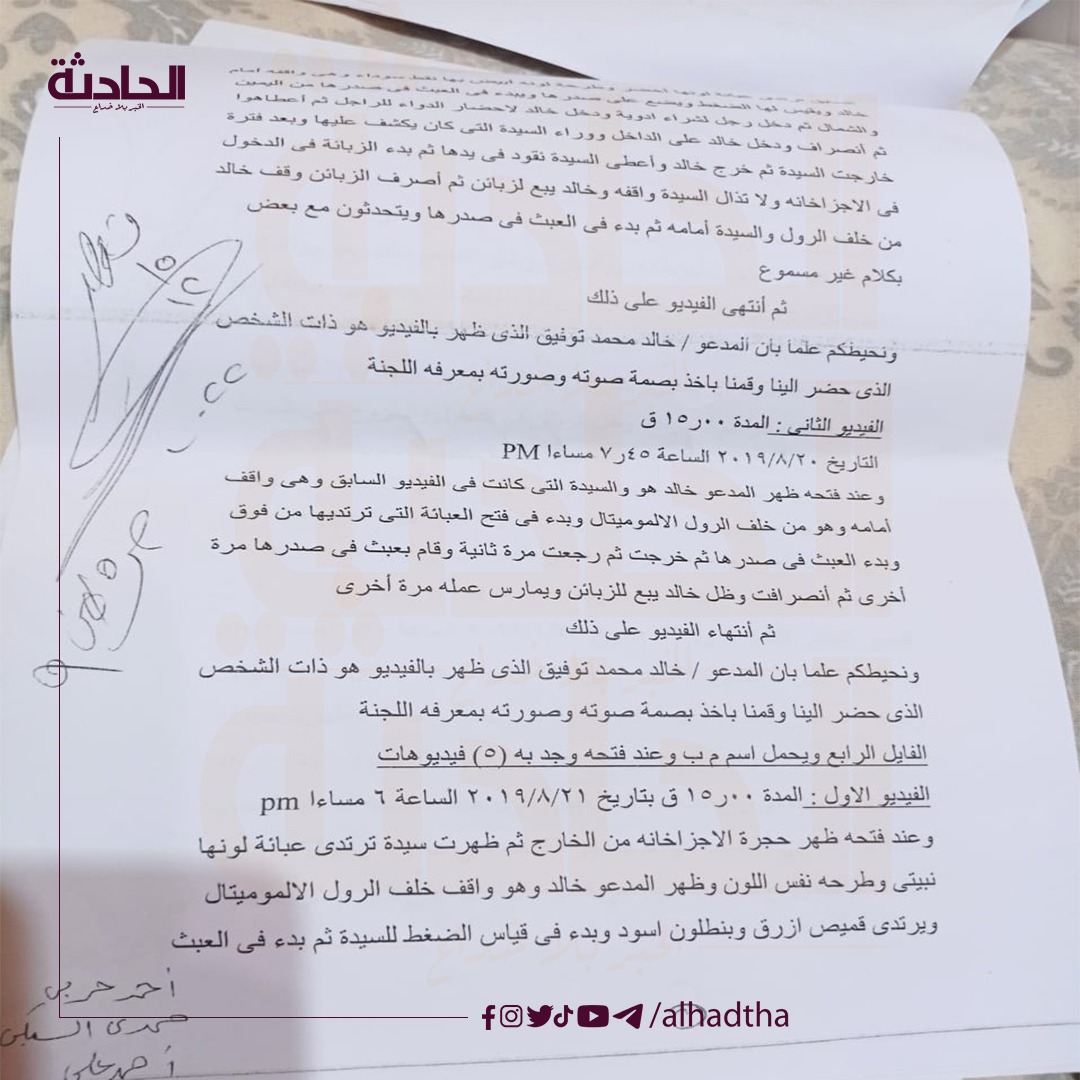 الحادثة
الخبر بلا خداع
خالد وبقيس لها الضغط ويضع على صدرها ويبدء فى العبث فى صدرها من اليمين
والشمال ثم دخل رجل لشراء ادوية ودخل خالد لاحضار الدواء للراجل ثم أعطاهوا
ثم أنصراف ودخل خالد على الداخل ووراء السيدة التى كان يكشف عليها وبعد فترة
خارجت السيدة ثم خرج خالد وأعطى السيدة نقود فى يدها ثم بدء الزبائة فى الدخول
فى الاجزاخانه ولا تذال السيدة واقفه وخالد يبع لزبائن ثم أصرف الزبائن وقف خالد
من خلف الرول والسيدة أمامه ثم بدء فى العبث فى صدرها ويتحدثون مع بعض
بكلام غير مسموع
ثم أنتهى الفيديو على ذلك
ونحيطكم علما بان المدعو / خالد محمد توفيق الذى ظهر بالفيديو هو ذات الشخص
الذى حضر الينا وقمنا باخذ بصمة صوته وصورته بمعرفه اللجنة
الفيديو الثانى : المدة ٠٠ر١٥ ق
التاريخ ٢٠١٩/٨/٢٠ الساعة ٤٥ر٧ مساءا PM
وعند فتحه ظهر المدعو خالد هو والسيدة التى كانت فى الفيديو السابق وهى واقف
أمامه وهو من خلف الرول الالموميتال وبدء فى فتح العبائة التى ترتديها من فوق
وبدء العبث فى صدرها ثم خرجت ثم رجعت مرة ثانية وقام بعبث فى صدرها مرة
أخرى ثم أنصرافت وظل خالد يبع للزبائن ويمارس عمله مرة أخرى
ثم أنتهاء الفيديو على ذلك
ونحيطكم علما بان المدعو / خالد محمد توفيق الذى ظهر بالفيديو هو ذات الشخص
الذى حضر الينا وقمنا باخذ بصمة صوته وصورته بمعرفه اللجنة
الفايل الرابع ويحمل اسم م ب وعند فتحه وجد به (٥) فيديوهات
الفيديو الاول : المدة ٠٠ر١٥ ق بتاريخ ٢٠١٩/٨/٢١ الساعة ٦ مساءا pm
وعند فتحه ظهر حجرة الاجزاخانه من الخارج ثم ظهرت سيدة ترتدى عبائة لونها
نبيتى وطرحه نفس اللون وظهر المدعو خالد وهو واقف خلف الرول الالموميتال
ويرتدى قميص ازرق وبنطلون اسود وبدء فى قياس الضغط للسيدة ثم بدء فى العبث
أحمد حربي
حمدى
أحمد على
/alhadtha